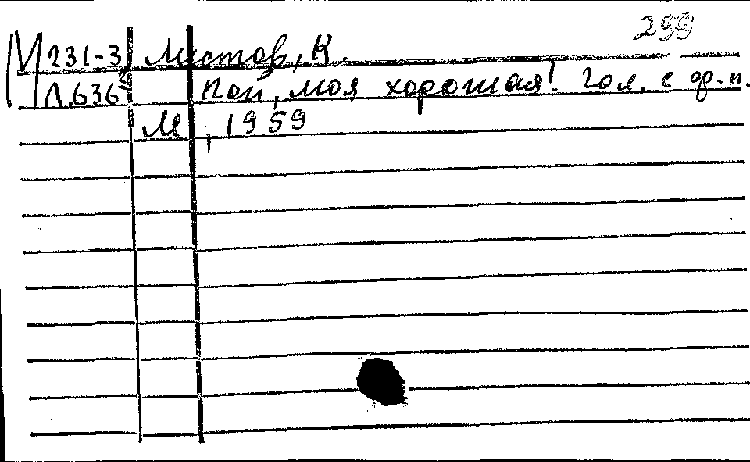 299
М 231-3 Листов, К.
Л.636 Пой, моя хорошая! Гол. с ф.-п.
М., 1959